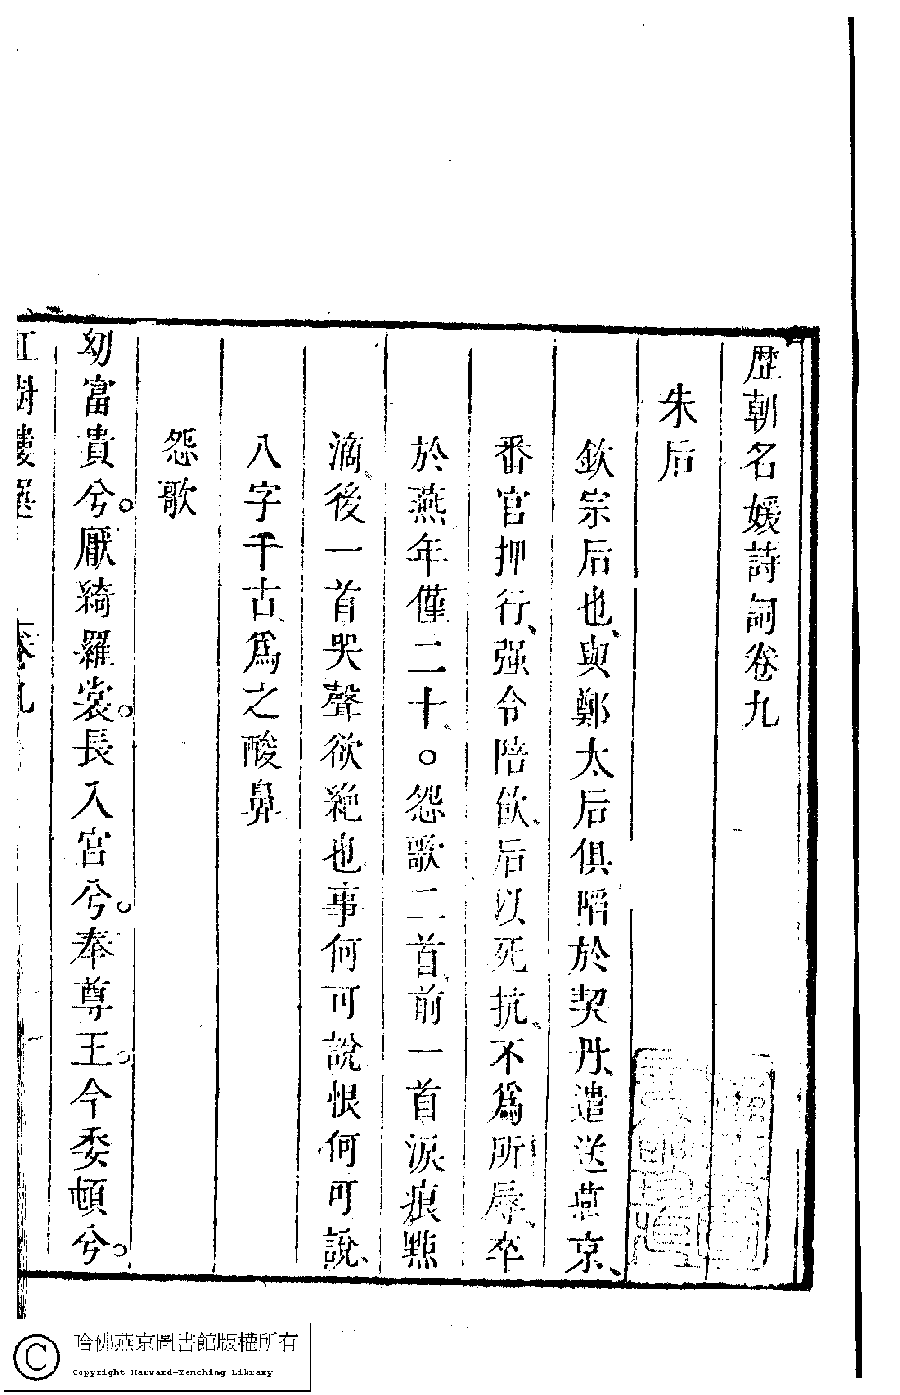 歴朝名媛詩詞卷九
朱后
欽宗后也、與鄭太后俱陷於契丹、遣送燕京、
番官押行、强令陪飲、后以死抗、不爲所辱、卒
於燕年僅二十。怨歌二首前一首淚痕點
滴後一首哭聲欲絶也事何可說恨何可說、
八字千古爲之酸鼻
怨歌
幼富貴兮。厭綺羅裳。長入宮兮。奉尊王。今委頓兮。
紅樹樓選 卷九
哈佛燕京圖書館版權所有
Copyright Harvard-Yenching Library